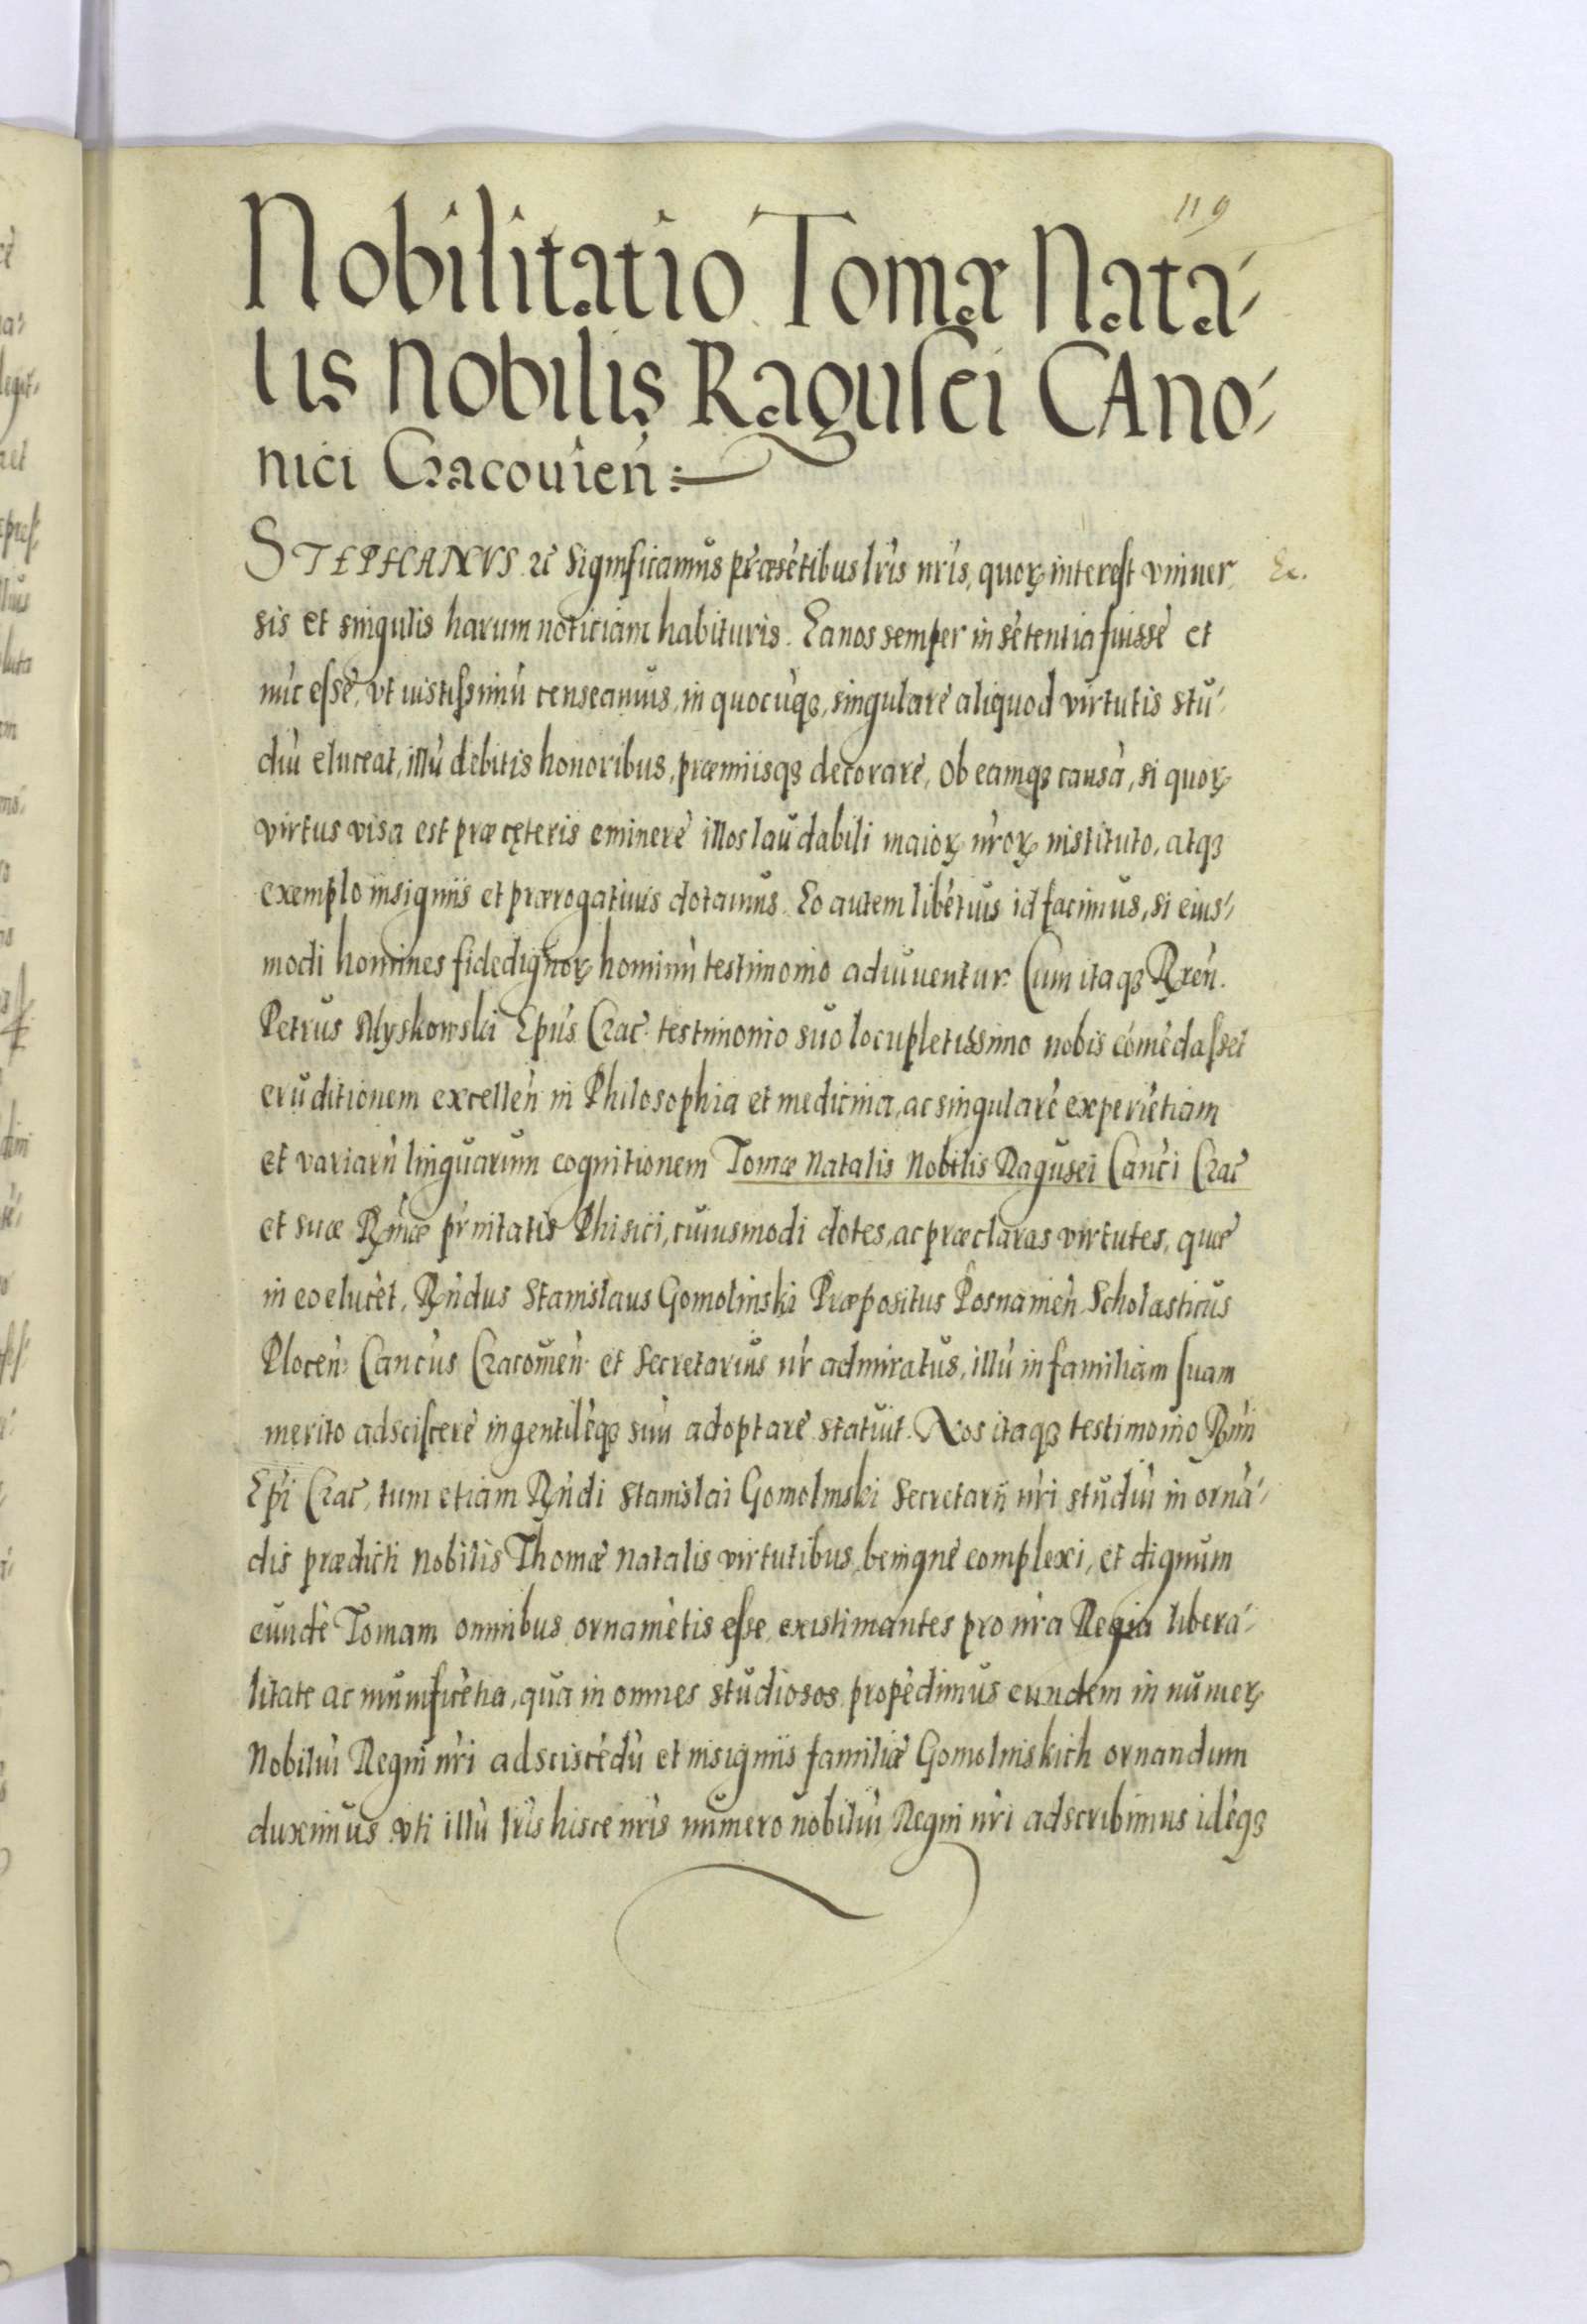 119
Nobilitatio Tomæ Nata-
lis Nobilis Ragusei CAno-
nici Cracouien̄:
STEPHANVS etc Significamus præsẽtibus lr̃is nr̃is, quorꝝ interest vniuer
Ec.
sis et singulis harum noticiam habituris. Ea nos semper in sẽtentia fuisse et
nũc esse, vt iustissimũ censeamus, in quocũqꝫ, singulare aliquod virtutis stu-
diũ eluceat, illũ debitis honoribus, præmiisqꝫ decorare, Ob eamqꝫ causã, si quoꝝ
virtus visa est præ cęteris eminere illos laudabili maioꝝ nr̃oꝝ instituto, atqꝫ
exemplo insigniis et prærogatiuis dotamus. Eo autem libẽtius id facimus, si eius-
modi homines fidedignoꝝ hominũ testimonio adiuuentur: Cum itaqꝫ Rreñ.
Petrus Myskowski Ep̃us Crac̃ testimonio suo locupletissimo nobis cõmẽdasset
eruditionem excelleñ in Philosophia et medicina, ac singularẽ experiẽtiam
et variarũ linguarum cognitionem Tomæ Natalis Nobilis Ragusei Canc̃i Crac̃
et suæ Rm̃æ pr̃nitatis Phisici, cuiusmodi dotes, ac præclaras virtutes, quæ
in eo elucẽt, Rñdus Stanislaus Gomolinski Præpositus Posnanieñ Scholasticus
Ploceñ: Canc̃us Cracouieñ et Secretarius nr̃ admiratus, illũ in familiam suam
merito adsciscere in gentilẽqꝫ suũ adoptare statuit. Nos itaqꝫ testimonio Rm̃i
Ep̃i Crac̃, tum etiam Rñdi Stanislai Gomolinski Secretarii nr̃i studiũ in ornã-
dis prædicti Nobilis Thomæ Natalis virtutibus, benigne complexi, et dignum
eundẽ Tomam omnibus ornamẽtis esse existimantes pro nr̃a Regia libera-
litate ac munificẽtia, qua in omnes studiosos propẽdimus eundem in numeꝝ
Nobiliũ Regni nr̃i adsciscẽdũ et insigniis familiæ Gomolinskich ornandum
duximus vti illũ lr̃is hisce nr̃is numero nobiliũ Regni nr̃i adscribimus idẽqꝫ